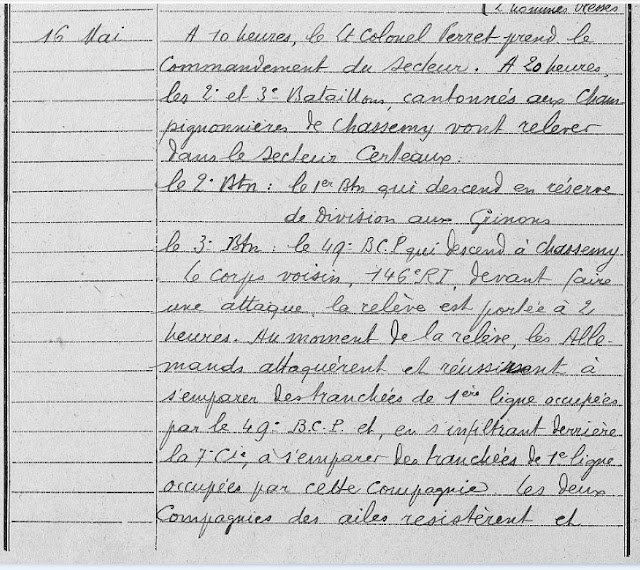 2 hommes blessés
16 Mai A 10 heures, le Lt Colonel Perret prend le
Commandement du Secteur. A 20 heures,
les 2e et 3e Bataillons, cantonnés aux Cham
pignonnières de Chassemy vont relever
dans le secteur Certeaux :
le 2e Btn : le 1er Btn qui descend en réserve
de Division aux Grinons
le 3e Btn : le 49e B.C.P qui descend à Chassemy
Le Corps voisin, 146e R.I, devant faire
une attaque, la relève est portée à 2
heures. Au moment de la relève, les Alle-
mands attaquèrent et réussirent à
s'emparer des tranchées de 1ère ligne occupées
par le 49e B.C.P. et, en s'infiltrant derrière
la 7e Cie, à s'emparer des tranchées de 1e ligne
occupées par cette Compagnie. Les deux
Compagnies des ailes resistèrent et